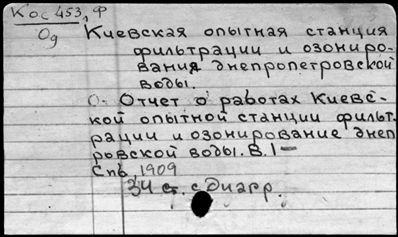 Кос 453, Ф
Од
Киевская опытная станция
фильтрации и озониро-
вания днепропетровской
воды.
О- Отчет о работах Киевс-
кой опытной станции фильт-
рации и озонирование днеп
ровской воды. В. I —
Спб, 1909
34 ст. с диагр.